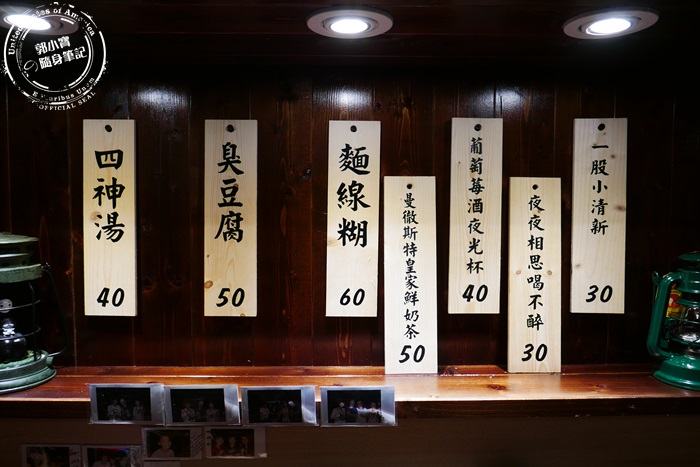 United States of America
郭小寶
の隨身筆記
E Pluribus Unum
OFFICIAL SEAL
四神湯
40
臭豆腐
50
麵線糊
60
曼徹斯特皇家鮮奶茶
50
葡萄莓酒夜光杯
40
夜夜相思喝不醉
30
一股小清新
30